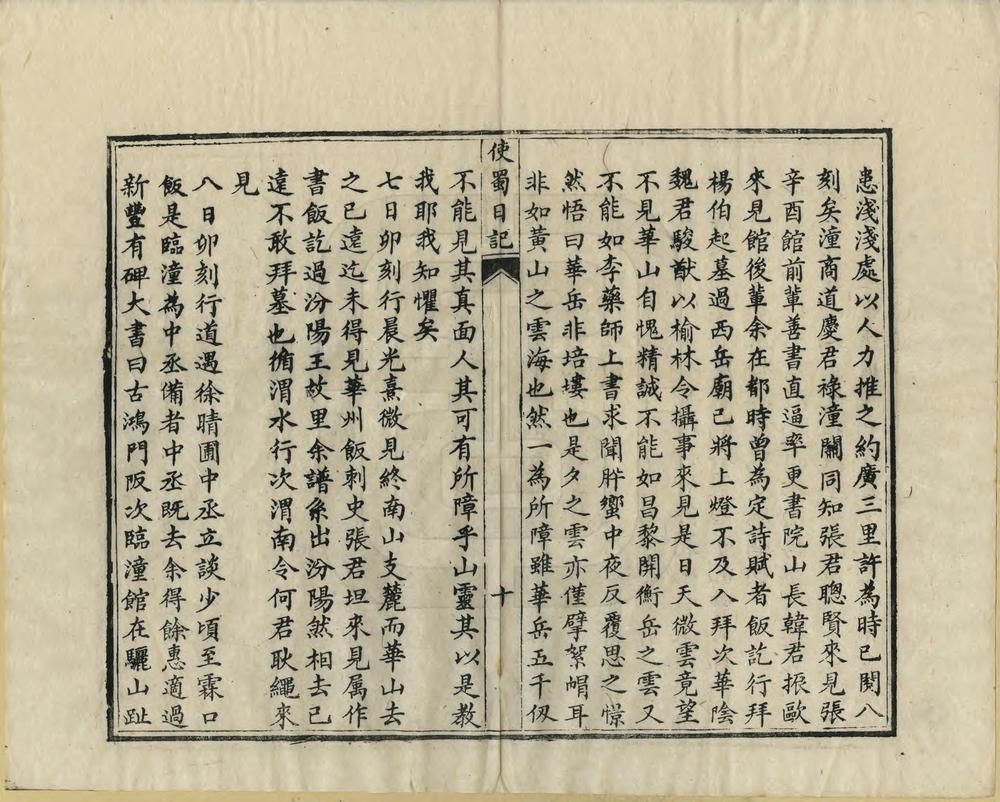 患淺淺處以人力推之約廣三里許為時已閱八
刻矣潼商道慶君祿潼關同知張君聰賢來見張
辛酉館前輩善書直逼率更書院山長韓君振歐
來見館後輩余在都時曾為定詩賦者飯訖行拜
楊伯起墓過西岳廟已將上燈不及入拜次華陰
魏君駿猷以榆林令攝事來見是日天微雲竟望
不見華山自愧精誠不能如昌黎開衡岳之雲又
不能如李藥師上書求聞肸蠁中夜反覆思之憬
然悟曰華岳非培塿也是夕之雲亦僅擘絮帽耳
非如黃山之雲海也然一為所障雖華岳五千仞
使蜀日記
十
不能見其真面人其可有所障乎山靈其以是教
我耶我知懼矣
七日卯刻行晨光熹微見終南山支麓而華山去
之已遠迄未得見華州飯刺史張君坦來見属作
書飯訖過汾陽王故里余譜系出汾陽然相去已
遠不敢拜墓也循渭水行次渭南令何君耿繩來
見
八日卯刻行道遇徐晴圃中丞立談少頃至霖口
飯是臨潼為中丞備者中丞既去余得餘惠適過
新豐有碑大書曰古鴻門阪次臨潼館在驪山趾